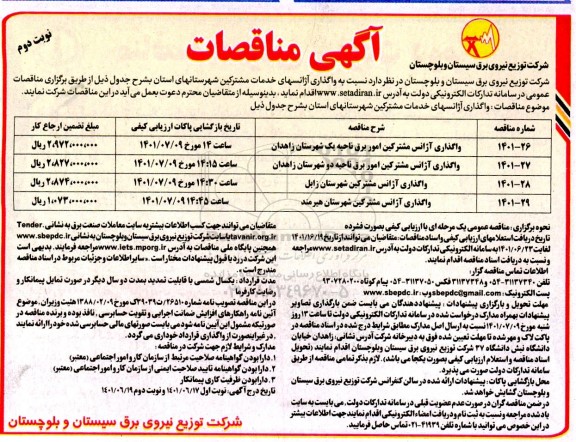 نوبت دوم
آگهی مناقصات
شرکت توزیع نیروی برق سیستان و بلوچستان
شرکت توزیع نیروی برق سیستان و بلوچستان در نظر دارد نسبت به واگذاری آژانسهای خدمات مشترکین شهرستانهای استان بشرح جدول ذیل از طریق برگزاری مناقصات
عمومی در سامانه تدارکات الکترونیکی دولت به آدرس www.setadiran.ir اقدام نماید . بدینوسیله از متقاضیان محترم دعوت بعمل می آید در این مناقصات شرکت نمایند.
موضوع مناقصات : واگذاری آژانسهای خدمات مشترکین شهرستانهای استان بشرح جدول ذیل
شماره مناقصه شرح مناقصه تاریخ بازگشایی پاکات ارزیابی کیفی مبلغ تضمین ارجاع کار
۱۴۰۱-۲۶ واگذاری آژانس مشترکین امور برق ناحیه یک شهرستان زاهدان ساعت ۱۴ مورخ ۱۴۰۱/۰۷/۰۹ ۲،۹۷۲،۰۰۰،۰۰۰ ریال
۱۴۰۱-۲۷ واگذاری آژانس مشترکین امور برق ناحیه دو شهرستان زاهدان ساعت ۱۴:۱۵ مورخ ۱۴۰۱/۰۷/۰۹ ۲،۸۲۷،۰۰۰،۰۰۰ ریال
۱۴۰۱-۲۸ واگذاری آژانس مشترکین شهرستان زابل ساعت ۱۴:۳۰ مورخ ۱۴۰۱/۰۷/۰۹ ۲،۸۷۴،۰۰۰،۰۰۰ ریال
۱۴۰۱-۲۹ واگذاری آژانس مشترکین شهرستان هیرمند ساعت ۱۴:۴۵ مورخ ۱۴۰۱/۰۷/۰۹ ۱،۰۷۳،۰۰۰،۰۰۰ ریال
نحوه برگزاری : مناقصه عمومی یک مرحله ای با ارزیابی کیفی بصورت فشرده
تاریخ دریافت استعلامهای ارزیابی کیفی و اسناد مناقصات : متقاضیان می توانند از تاریخ
لغایت ۱۴۰۱/۰۶/۲۳ به سامانه الکترونیکی تدارکات دولت به آدرس www.setadiran.ir مراجعه
و نسبت به دریافت اسناد مناقصه اقدام نمایند.
اطلاعات تماس مناقصه گزار:
تلفن : ۳۱۱۳۷۳۴۰-۰۵۴ و ۳۱۱۳۷۳۴۸ نمابر: ۳۱۱۳۷۰۵۰-۰۵۴ پیام کوتاه:
پست الکترونیک: sbepdc@gmail.com وب: www.sbepdc.ir
مهلت تحویل و بارگزاری پیشنهادات : پیشنهاددهندگان می بایست ضمن بارگذاری تصاویر
پیشنهادات بهمراه مدارک درخواست شده در سامانه تدارکات الکترونیکی دولت تا ساعت ۱۳ روز
شنبه مورخ ۱۴۰۱/۰۷/۰۹ نسبت به ارسال اصل مدارک مطابق شرایط درج شده در اسناد مناقصه در
پاکت لاک و مهر شده تا مهلت تعیین شده فوق به دبیرخانه شرکت آدرس نشانی: زاهدان خیابان
دانشگاه نبش دانشگاه ۲۷ شرکت توزیع نیروی برق سیستان و بلوچستان اقدام نمایند (تحویل
اسناد مناقصه و استعلام ارزیابی کیفی بصورت یکجا می باشد). لازم بذکر تمامی مناقصه از طریق
سامانه تدارکات دولت صورت می پذیرد.
محل بازگشایی پاکات : پیشنهادات ارائه شده در سالن کنفرانس شرکت توزیع نیروی برق سیستان
و بلوچستان گشایش خواهد شد.
در ضمن مناقصه گران در صورت عدم عضویت قبلی در سامانه تدارکات دولت ، می بایست به سایت
یاد شده مراجعه و نسبت به ثبت نام و دریافت امضاء الکترونیکی اقدام نمایند جهت اطلاعات بیشتر
در این خصوص می توانید با شماره تلفن ۴۱۹۳۴-۰۲۱ تماس حاصل نمایید.
متقاضیان می توانند جهت کسب اطلاعات بیشتر به سایت معاملات صنعت برق به نشانی Tender.
tavanir.org.ir یا سایت شرکت توزیع نیروی برق سیستان و بلوچستان به نشانی www.sbepdc.ir
همچنین پایگاه ملی مناقصات به آدرس www.iets.mporg.ir مراجعه فرمایند. بدیهی است
این شرکت در رد یا قبول پیشنهادات مختار است . سایر اطلاعات و جزئیات مربوط در اسناد مناقصه
مندرج است .
مدت قرارداد : یکسال شمسی با قابلیت تمدید بمدت دو سال دیگر در صورت تمایل پیمانکار و
رضایت کارفرما
در این مناقصه تصویب نامه شماره مورخ ۱۳۸۸/۰۲/۰۹ هئیت وزیران . موضوع
آئین نامه راهکارهای افزایش ضمانت اجرایی و تقویت حسابرسی . نافذ بوده و برنده مناقصه در
صورتیکه مشمول این آئین نامه شود می بایست صورتهای مالی حسابرسی شده خود را ارائه نمایند
. در غیر اینصورت از واگذاری قرارداد خودداری می گردد.
مدارک و شرایط لازم جهت شرکت در مناقصه :
۱. دارا بودن گواهینامه صلاحیت مرتبط از سازمان کار و امور اجتماعی (معتبر)
۲. دارا بودن گواهینامه تایید صلاحیت ایمنی از سازمان کار و امور اجتماعی (معتبر)
۳. دارا بودن ظرفیت کاری پیمانکار
تاریخ درج آگهی: نوبت اول ۱۴۰۱/۰۶/۱۷ و نوبت دوم ۱۴۰۱/۰۶/۱۹
شرکت توزیع نیروی برق سیستان و بلوچستان